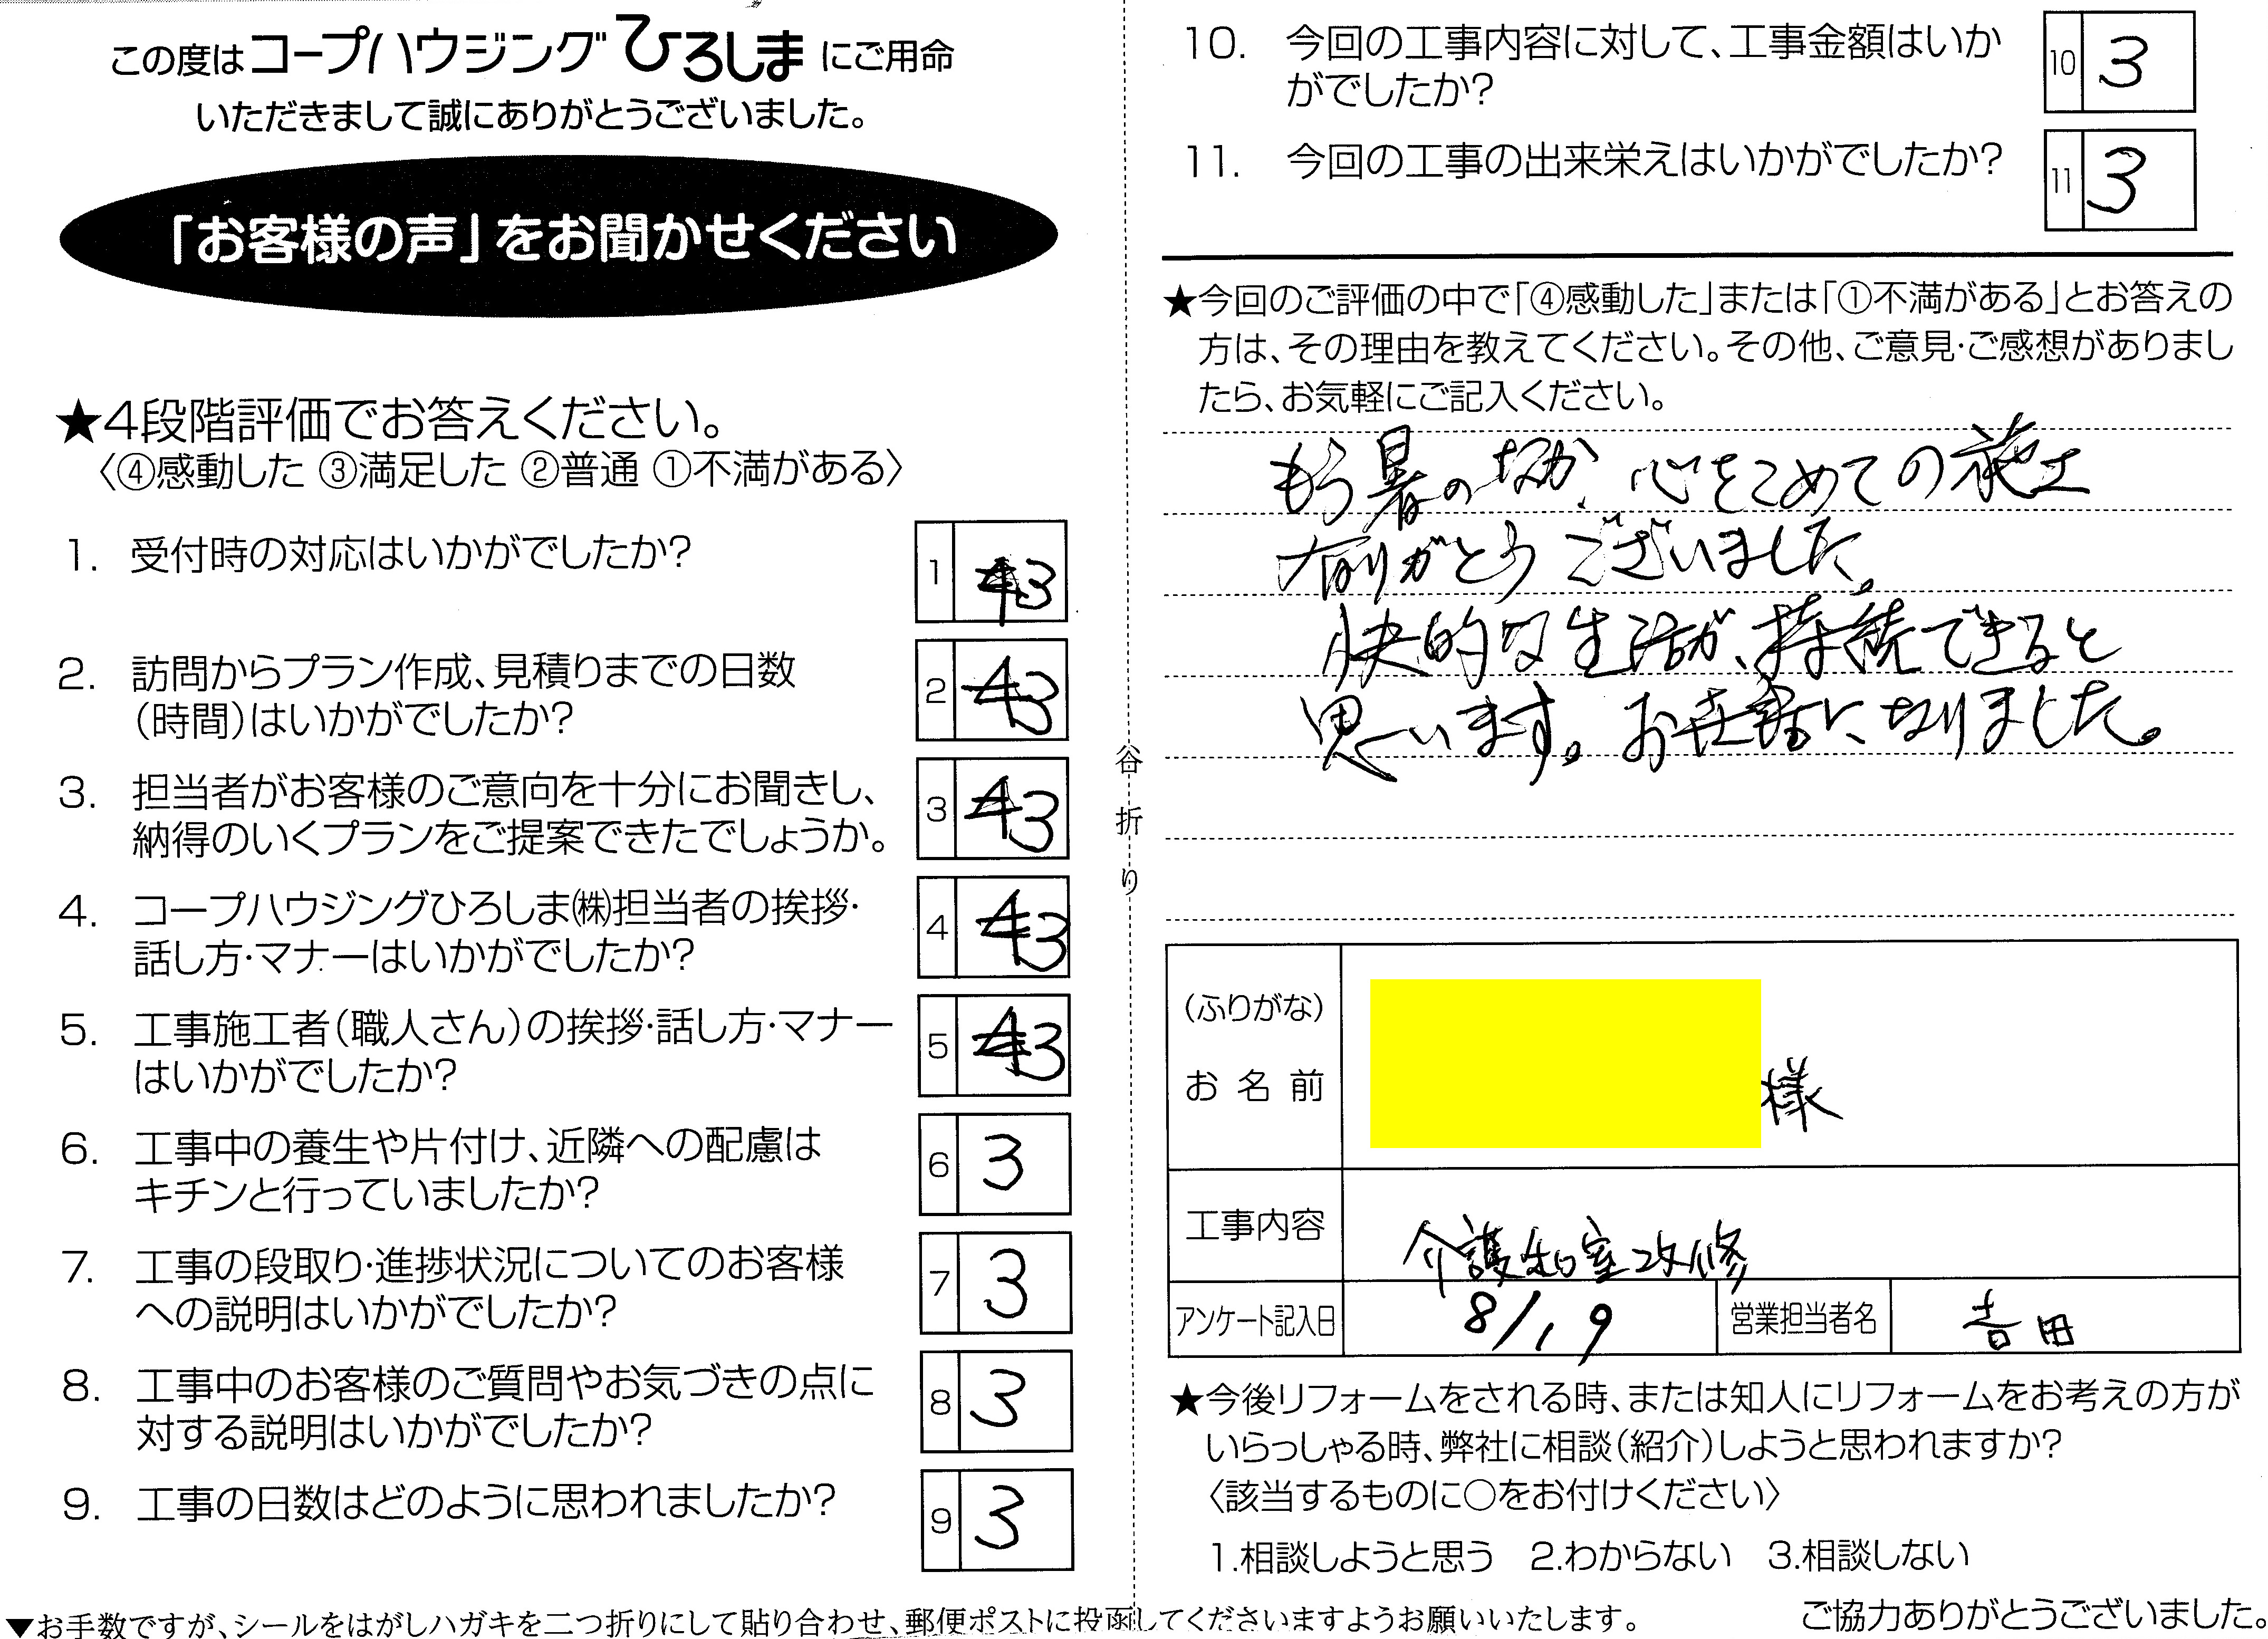 この度はコープハウジングひろしまにご用命
いただきまして誠にありがとうございました。
「お客様の声」をお聞かせください
★4段階評価でお答えください。
〈④感動した ③満足した ②普通 ①不満がある〉
1. 受付時の対応はいかがでしたか?
1 43
2. 訪問からプラン作成、見積りまでの日数
(時間)はいかがでしたか?
2 43
3. 担当者がお客様のご意向を十分にお聞きし、
納得のいくプランをご提案できたでしょうか。
3 43
4. コープハウジングひろしま㈱担当者の挨拶・
話し方・マナーはいかがでしたか?
4 43
5. 工事施工者(職人さん)の挨拶・話し方・マナー
はいかがでしたか?
5 43
6. 工事中の養生や片付け、近隣への配慮は
キチンと行っていましたか?
6 3
7. 工事の段取り・進捗状況についてのお客様
への説明はいかがでしたか?
7 3
8. 工事中のお客様のご質問やお気づきの点に
対する説明はいかがでしたか?
8 3
9. 工事の日数はどのように思われましたか?
9 3
▼お手数ですが、シールをはがしハガキを二つ折りにして貼り合わせ、郵便ポストに投函してくださいますようお願いいたします。
谷折り
10. 今回の工事内容に対して、工事金額はいか
がでしたか?
10 3
11. 今回の工事の出来栄えはいかがでしたか?
11 3
★今回のご評価の中で「④感動した」または「①不満がある」とお答えの
方は、その理由を教えてください。その他、ご意見・ご感想がありまし
たら、お気軽にご記入ください。
もう暑のなか、心をこめての施工
ありがとうございました。
快的な生活が、持続できると
思います。お世話になりました。
(ふりがな)
お名前
様
工事内容
介護和室改修
アンケート記入日
8/19
営業担当者名
吉田
★今後リフォームをされる時、または知人にリフォームをお考えの方が
いらっしゃる時、弊社に相談(紹介)しようと思われますか?
〈該当するものに○をお付けください〉
1.相談しようと思う 2.わからない 3.相談しない
ご協力ありがとうございました。